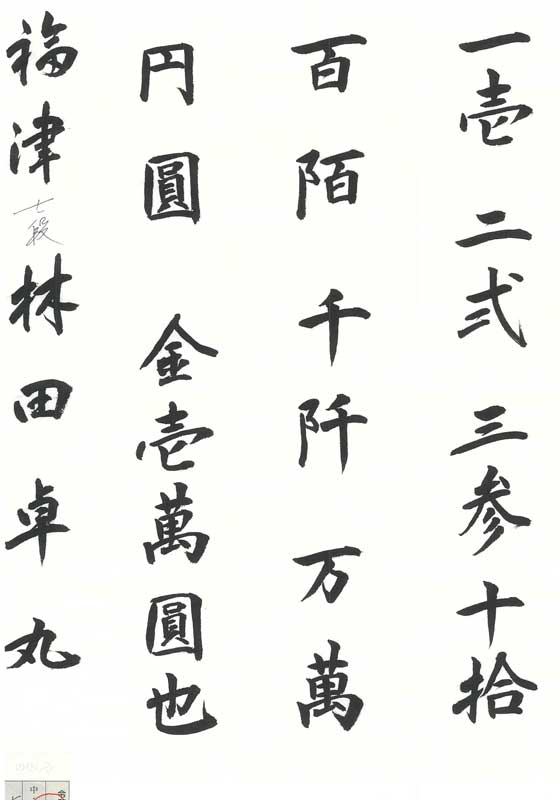 一壱 二弐 三参 十拾
百陌 千阡 万萬
円圓 金壱萬圓也
福津 七段 林田卓丸
中